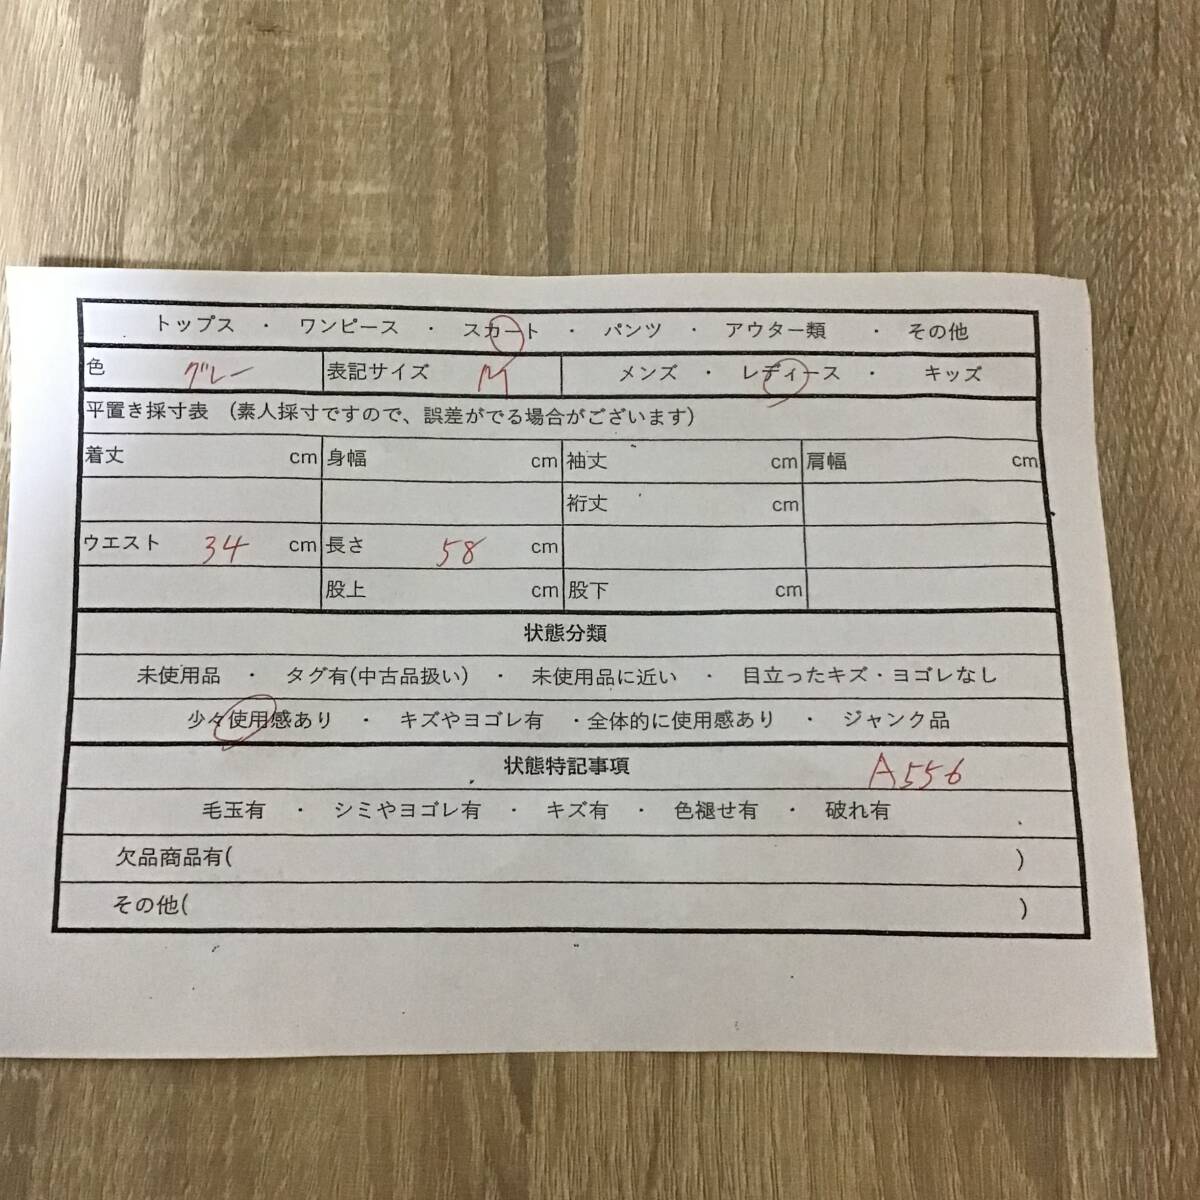 トップス ・ ワンピース ・ スカート ・ パンツ ・ アウター類 ・ その他
色 グレー 表記サイズ M メンズ ・ レディース ・ キッズ
平置き採寸表 (素人採寸ですので、誤差がでる場合がございます)
着丈 cm 身幅 cm 袖丈 cm 肩幅 cm
裄丈 cm
ウエスト 34 cm 長さ 58 cm
股上 cm 股下 cm
状態分類
未使用品 ・ タグ有(中古品扱い) ・ 未使用品に近い ・ 目立ったキズ・ヨゴレなし
少々使用感あり ・ キズやヨゴレ有 ・全体的に使用感あり ・ ジャンク品
状態特記事項 A556
毛玉有 ・ シミやヨゴレ有 ・ キズ有 ・ 色褪せ有 ・ 破れ有
欠品商品有( )
その他( )